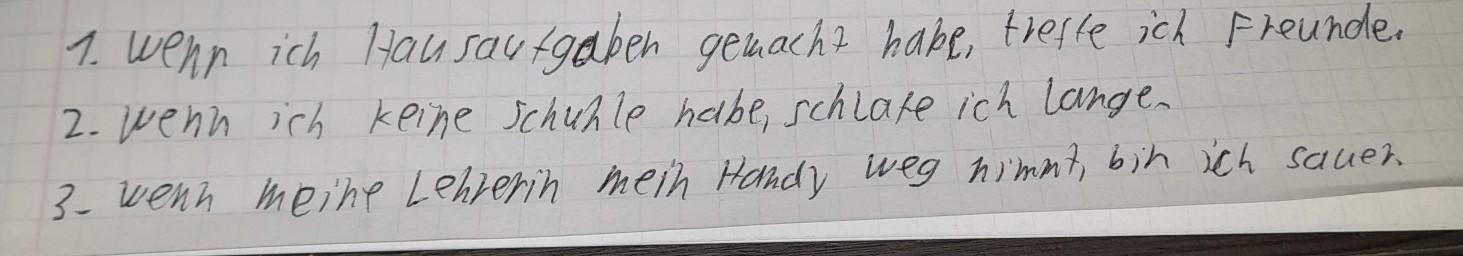 1. wenn ich Hausaufgaben gemacht habe, treffe ich Freunde.
2. wenn ich keine Schuhle habe, schlafe ich lange.
3- wenn meine Lehrerin mein Handy weg nimmt, bin ich sauer.